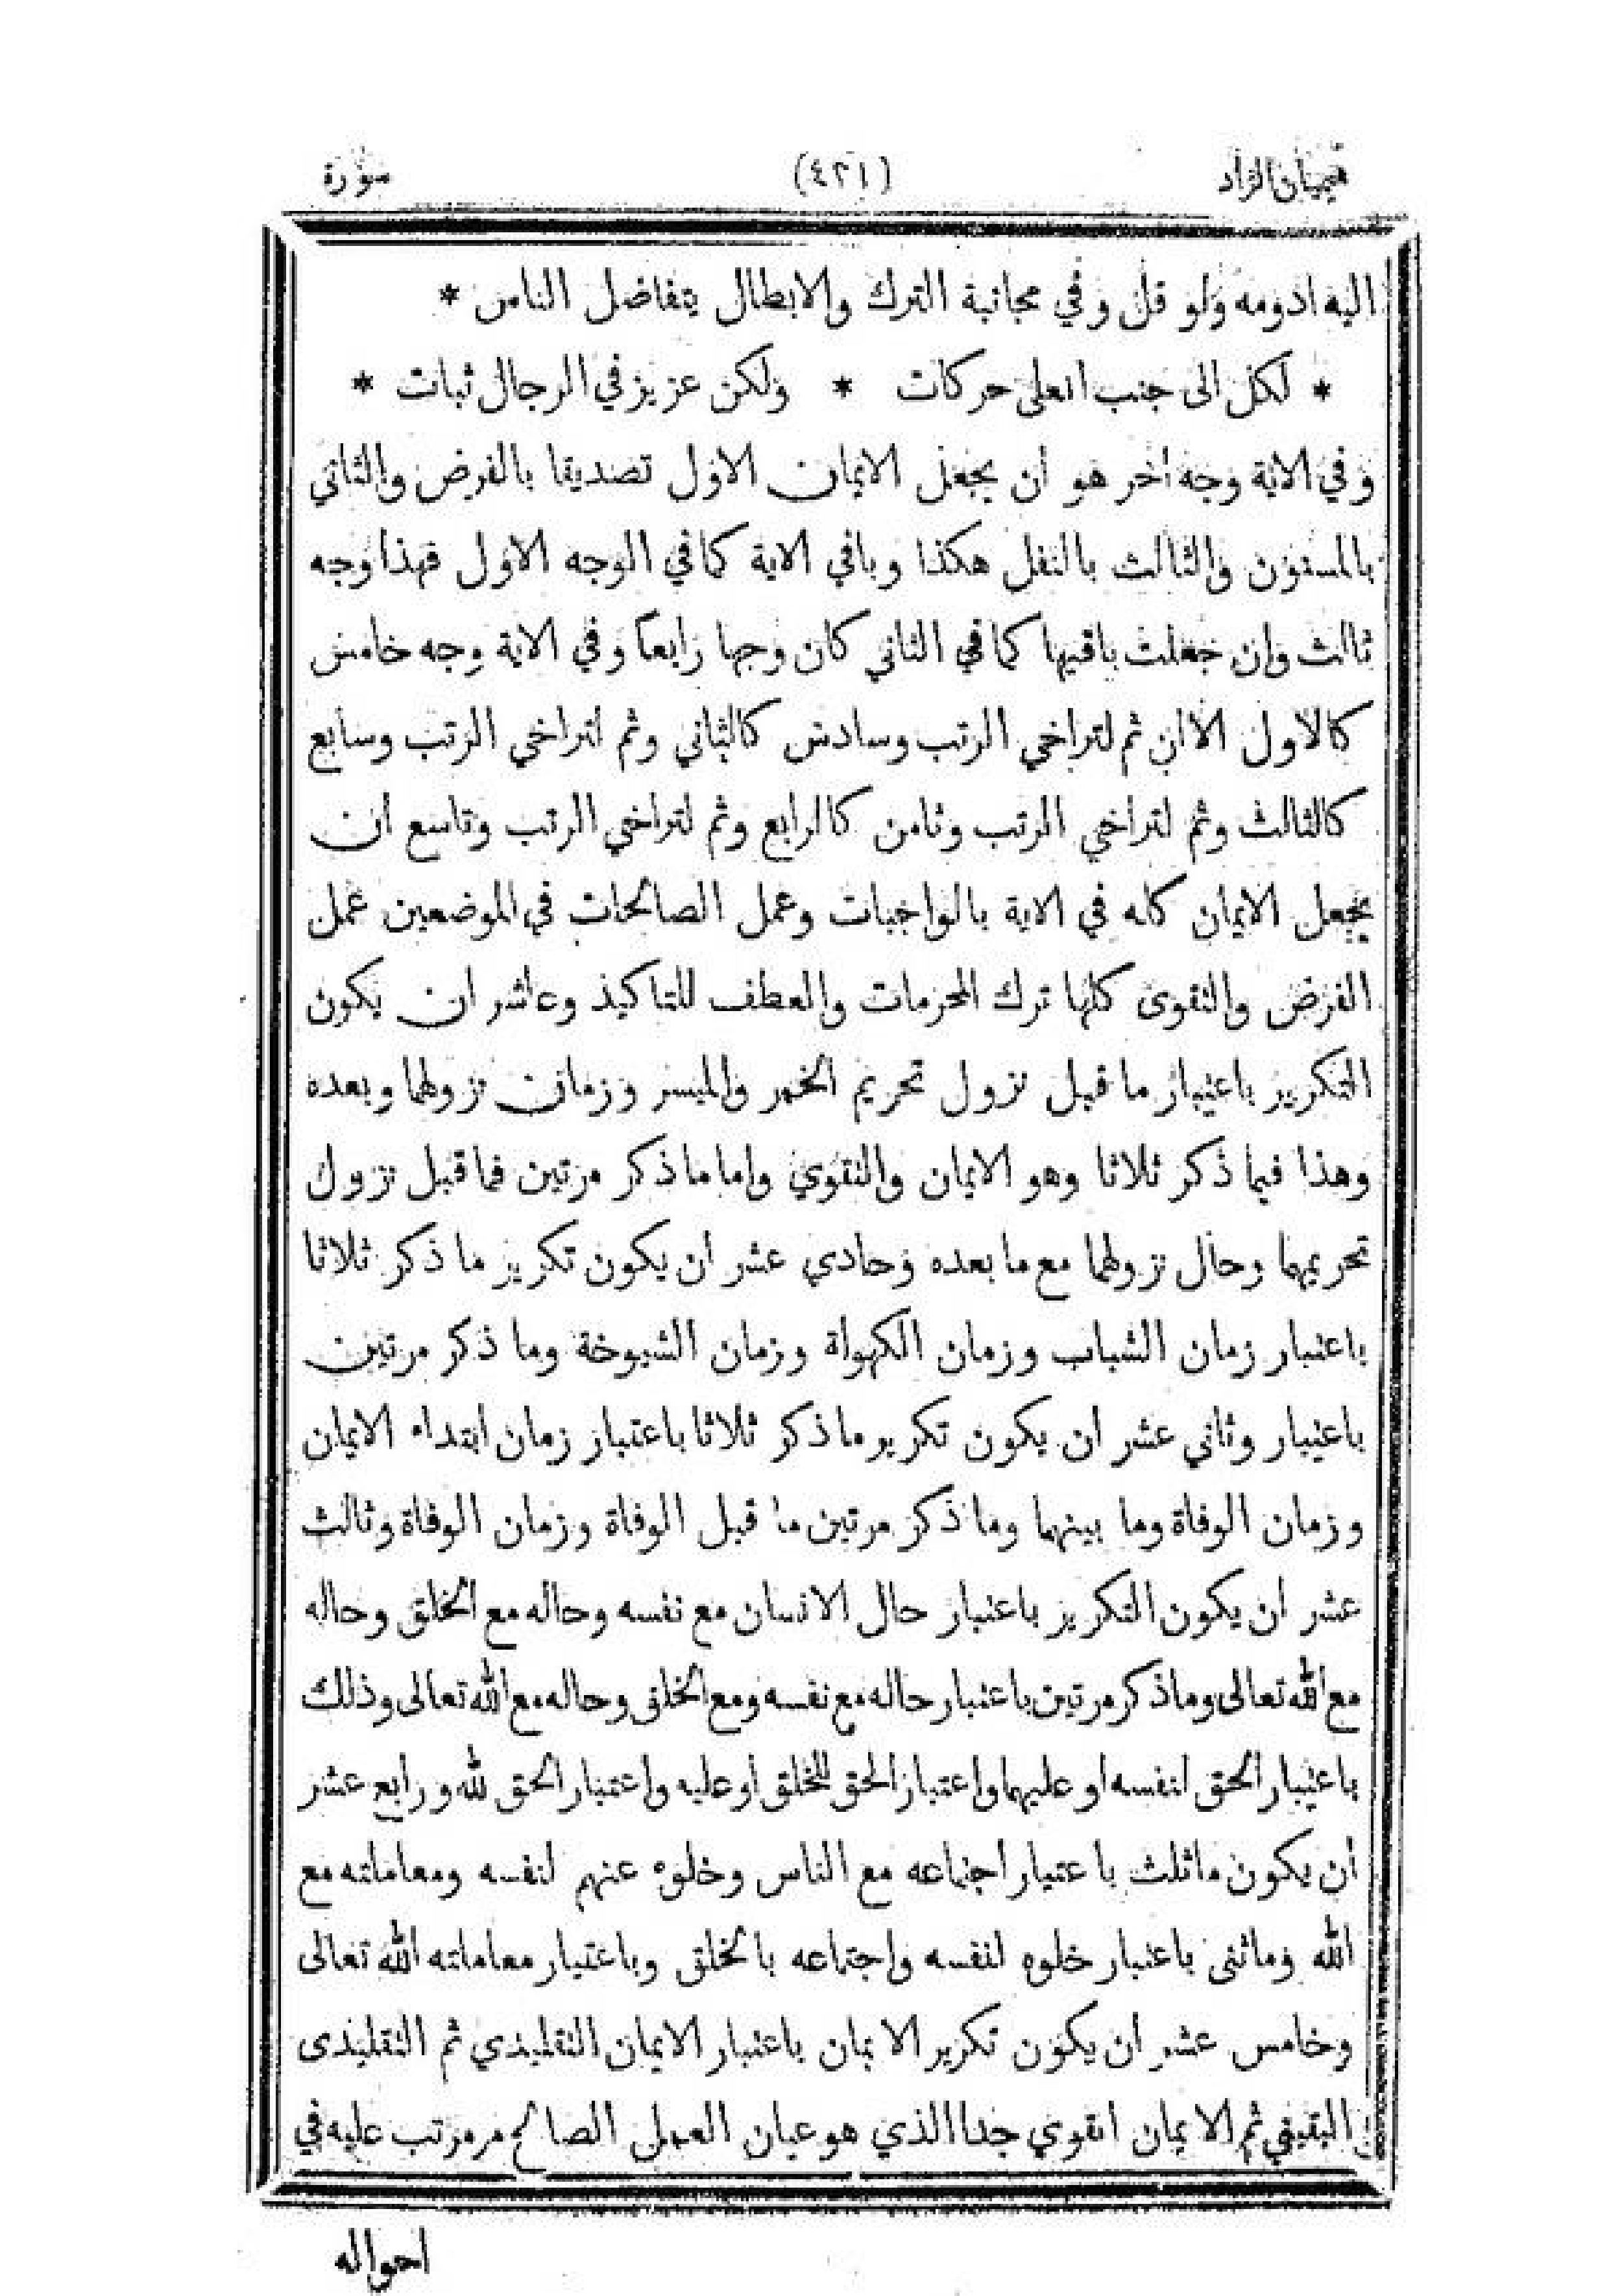 هيميان الزاد (٤٢١) سورة
اليه ادومه ولو قل وفي مجانبة الترك والابطال يتفاضل الناس *
* لكل الى جنب العلى حركات * ولكن عزيز في الرجال ثبات *
وفي الاية وجه اخر هو أن يجعل الايمان الاول تصديقا بالفرض والثاني
بالمسنون والثالث بالنفل هكذا وباقي الاية كما في الوجه الاول فهذا وجه
ثالث وان جعلت باقيها كما في الثاني كان وجها رابعا وفي الاية وجه خامس
كالاول الا ان ثم لتراخي الرتب وسادس كالثاني وثم لتراخي الرتب وسابع
كالثالث وثم لتراخي الرتب وثامن كالرابع وثم لتراخي الرتب وتاسع ان
يجعل الايمان كله في الاية بالواجبات وعمل الصالحات في الموضعين عمل
الفرض والتقوى كلها ترك المحرمات والعطف للتاكيد وعاشر ان يكون
التكرير باعتبار ما قبل نزول تحريم الخمر والميسر وزمان نزولها وبعده
وهذا فيما ذكر ثلاثا وهو الايمان والتقوي واما ما ذكر مرتين فما قبل نزول
تحريمهما وحال نزولهما مع ما بعده وحادي عشر أن يكون تكرير ما ذكر ثلاثا
باعتبار زمان الشباب وزمان الكهولة وزمان الشيوخة وما ذكر مرتين
باعتبار وثاني عشر ان يكون تكرير ما ذكر ثلاثا باعتبار زمان ابتداء الايمان
وزمان الوفاة وما بينهما وما ذكر مرتين ما قبل الوفاة وزمان الوفاة وثالث
عشر ان يكون التكرير باعتبار حال الانسان مع نفسه وحاله مع الخلق وحاله
مع الله تعالى وما ذكر مرتين باعتبار حاله مع نفسه ومع الخلق وحاله مع الله تعالى وذلك
باعتبار الحق لنفسه او عليها واعتبار الحق للخلق أو عليه واعتبار الحق لله ورابع عشر
أن يكون ما ثلث باعتبار اجتماعه مع الناس وخلوه عنهم لنفسه ومعاملته مع
الله وما ثنى باعتبار خلوه لنفسه واجتماعه بالخلق وباعتبار معاملته الله تعالى
وخامس عشر ان يكون تكرير الايمان باعتبار الايمان التقليدي ثم التقليدى
اليقيني ثم الايمان القوي جدا الذي هو عيان العمل الصالح مرتب عليه في
احواله